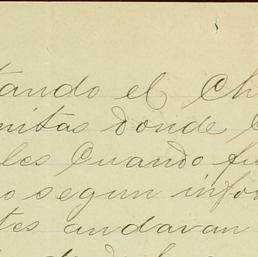 tando el Ch
nitas donde
les Cuando fu
o segun infor
tes andavan